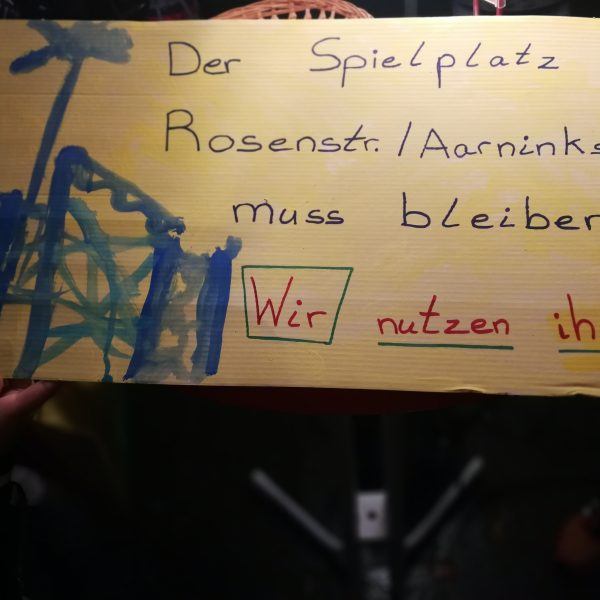 Der Spielplatz
Rosenstr. / Aarninks
muss bleiben
Wir nutzen ih